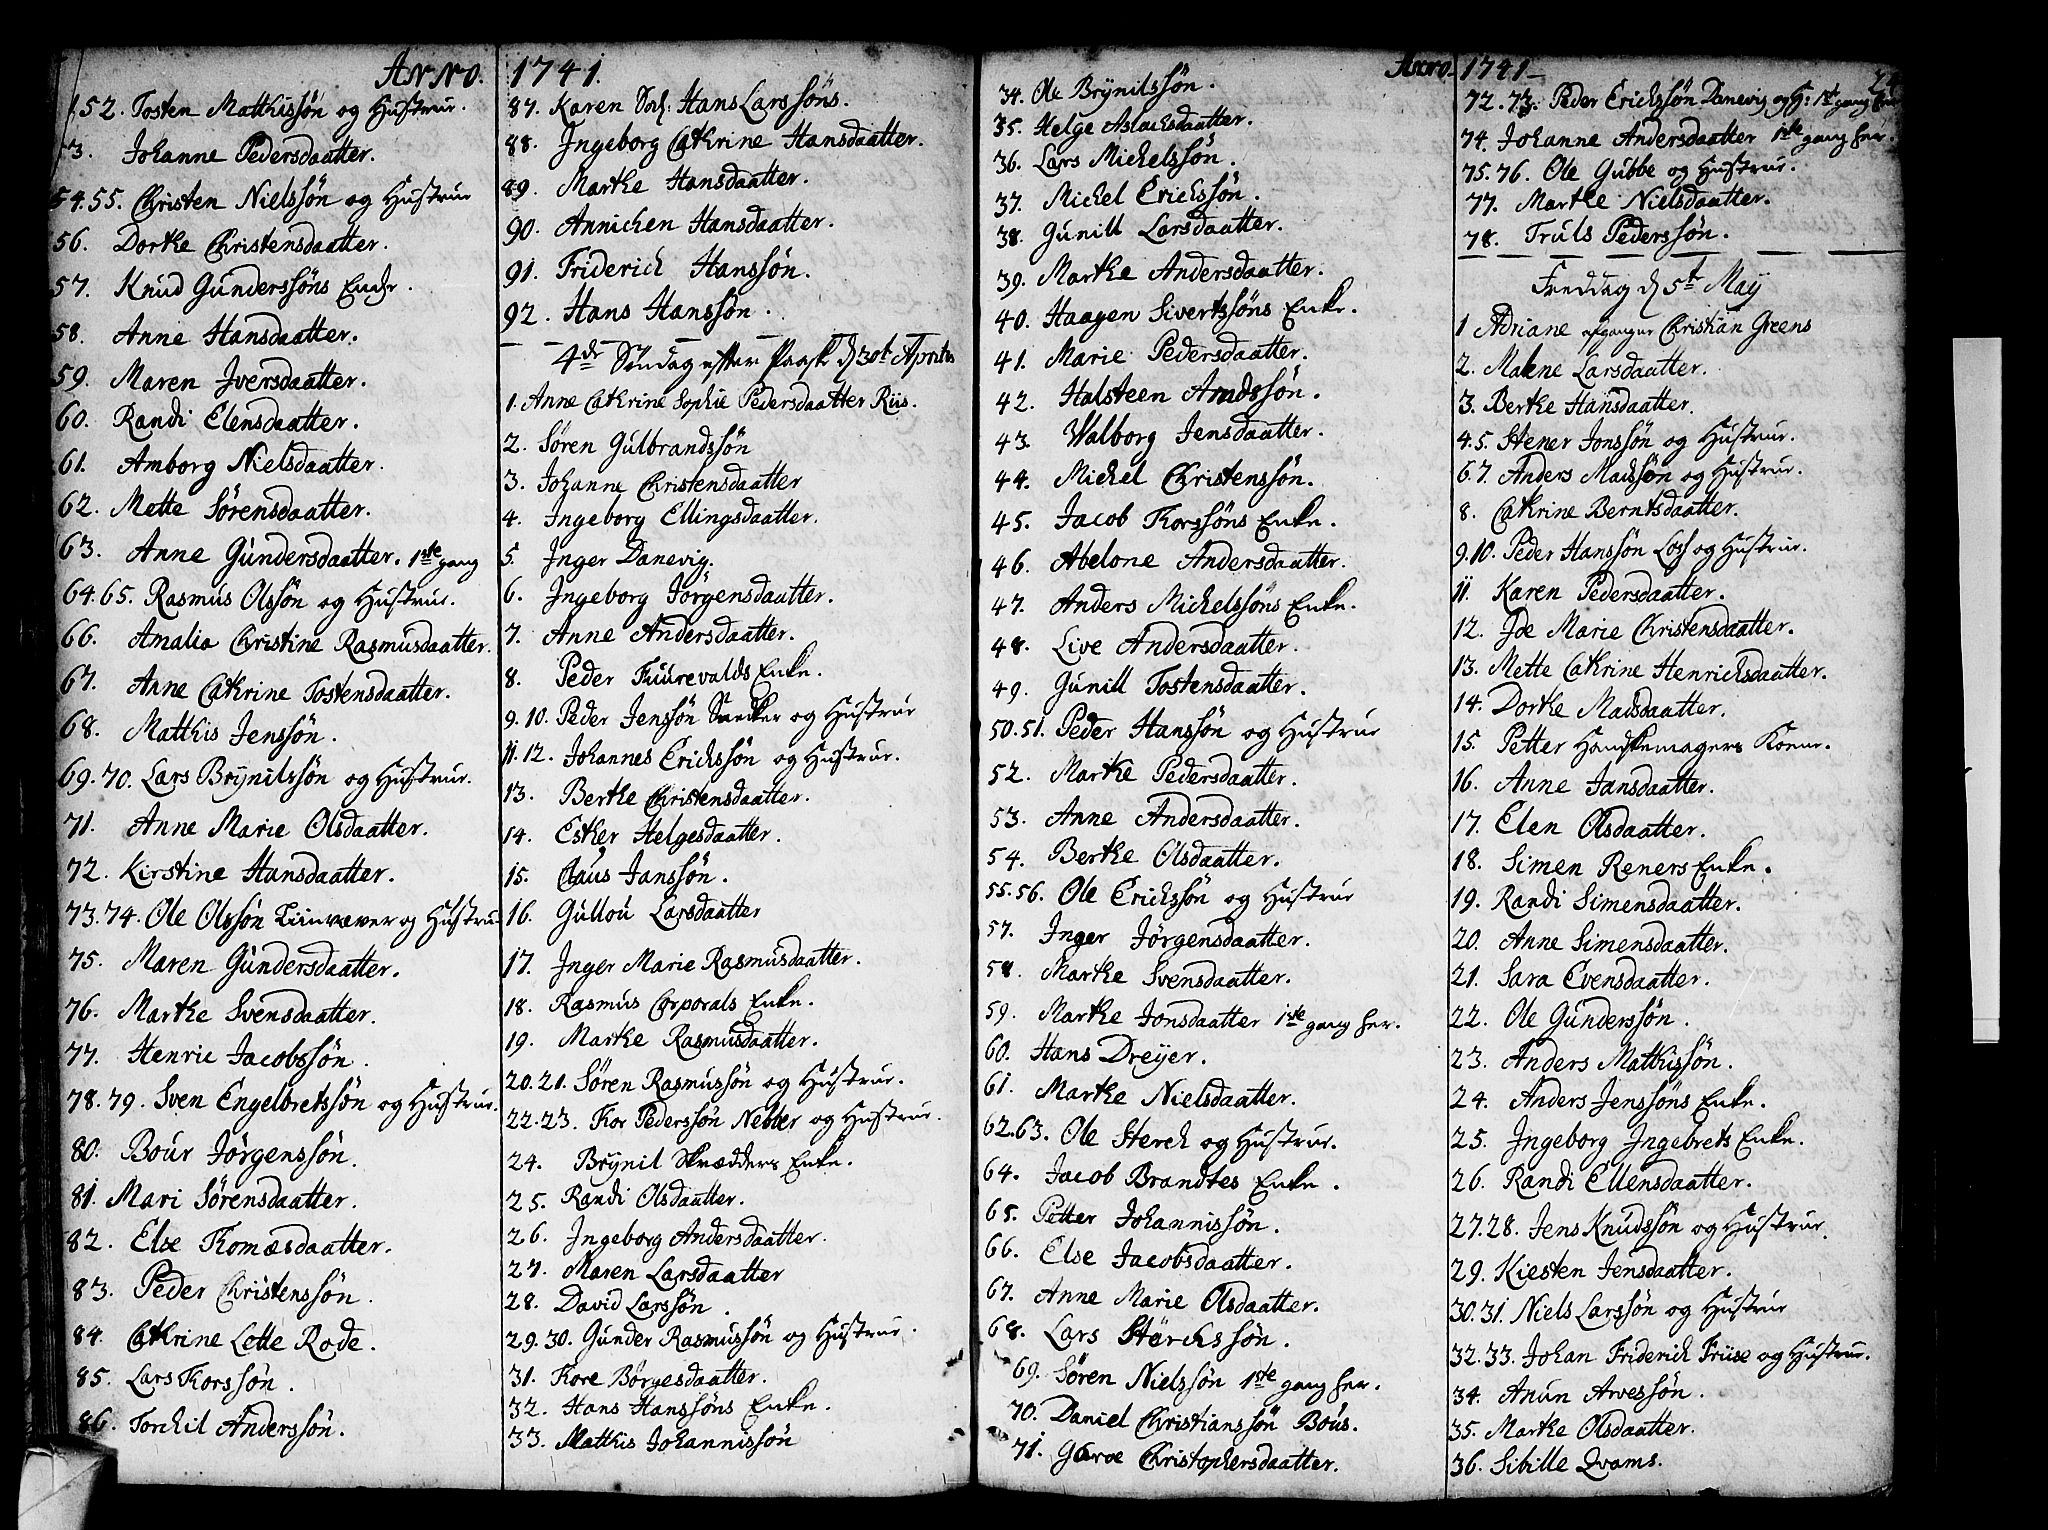 Anno.
152. Tosten Matthissøn og Hustrue.
53. Johanne Pedersdaatter.
54.55. Christen Nielssøn og Hustrue
56. Dorthe Christensdaatter.
57. Knud Gunderssøns Enche.
58. Anne Hansdaatter.
59. Maren Iversdaatter.
60. Randi Elensdaatter.
61. Amborg Nielsdaatter.
62. Mette Sørensdaatter.
63. Anne Gundersdaatter. 1ste gang
64.65. Rasmus Olssøn og Hustrue.
66. Amalia Christine Rasmusdaatter.
67. Anne Cathrine Tostensdaatter.
68. Matthis Jenssøn.
69.70. Lars Brynilssøn og Hustrue.
71. Anne Marie Olsdaatter.
72. Kirstine Hansdaatter.
73.74. Ole Olssøn Linvæver og Hustru
75. Maren Gundersdaatter.
76. Marthe Svensdaatter.
77. Henric Jacobssøn.
78.79. Sven Engelbretssøn og Hustrue.
80. Bour Jørgenssøn.
81. Mari Sørensdaatter.
82. Else Thomæsdaatter.
83. Peder Christenssøn.
84. Cathrine Lette Rode.
85. Lars Thorssøn.
86. Torchil Anderssøn.
1741.
87. Karen Hans Larssøns.
88. Ingeborg Cathrine Hansdaatter.
89. Marthe Hansdaatter.
90. Annichen Hansdaatter.
91. Friderich Hanssøn.
92. Hans Hanssøn.
4de Søndag efter Paaske d 30t Aprilis
1. Anne Cathrine Sophie Pedersdaatter Riis.
2. Søren Gulbrandssøn
3. Johanne Christensdaatter
4. Ingeborg Ellingsdaatter.
5. Inger Danevig.
6. Ingeborg Jørgensdaatter.
7. Anne Andersdaatter.
8. Peder Fuurevalds Enke.
9.10. Peder Jenssøn Snedker og Hustrue
11.12. Johannes Erichssøn og Hustrue.
13. Berthe Christensdaatter.
14. Esther Helgesdaatter.
15. Claus Janssøn.
16. Gullou Larsdaatter
17. Inger Marie Rasmusdaatter.
18. Rasmus Corporals Enke.
19. Marthe Rasmusdaatter.
20.21. Søren Rasmussøn og Hustrue.
22.23. Thor Pederssøn Netter og Hustrue.
24. Brynil Skrædders Enke.
25. Randi Olsdaatter.
26. Ingeborg Andersdaatter.
27. Maren Larsdaatter
28. David Larssøn.
29.30. Gunder Rasmussøn og Hustrue.
31. Thore Børgesdaatter.
32. Hans Hanssøns Enke.
33. Matthis Johannissøn
Anno.
34. Ole Brynilssøn.
35. Helge Aslachsdaatter.
36. Lars Michelssøn.
37. Michel Erichssøn.
38. Gunild Larsdaatter.
39. Marthe Andersdaatter.
40. Haagen Sivertssøns Enke.
41. Marie Pedersdaatter.
42. Halsteen Arndssøn.
43. Walborg Jensdaatter.
44. Michel Christenssøn.
45. Jacob Thorssøns Enke.
46. Abelone Andersdaatter.
47. Anders Michelssøns Enke.
48. Live Andersdaatter.
49. Gunill Tostensdaatter.
50.51. Peder Hanssøn og Hustrue
52. Marthe Pedersdaatter.
53. Anne Andersdaatter.
54. Berthe Olsdaatter.
55.56. Ole Erichssøn og Hustrue
57. Inger Jørgensdaatter.
58. Marthe Svensdaatter.
59. Marthe Jonsdaatter 1ste gang her.
60. Hans Dreyer.
61. Marthe Nielsdaatter.
62.63. Ole Sterch og Hustrue.
64. Jacob Brandtes Enke.
65. Petter Johannissøn.
66. Else Jacobsdaatter.
67. Anne Marie Olsdaatter.
68. Lars Størchssøn.
69. Søren Nielssøn 1ste gang her.
70. Daniel Christianssøn Bous.
71. Christophersdaatter.
1741
72.73. Peder Erichssøn Danevig og H: 1ste gang
74. Johanne Andersdaatter 1ste gang her.
75.76. Ole Gubbe og Hustrue.
77. Marthe Nielsdaatter.
78. Truls Pederssøn.
Freddag d 5t May
1 Adriane afgangne Christian Greens
2. Malene Larsdaatter.
3. Berthe Hansdaatter.
4.5. Stener Jonssøn og Hustrue.
6.7. Anders Madssøn og Hustrue.
8. Cathrine Berntsdaatter.
9.10. Peder Hanssøn Los og Hustrue.
11. Karen Pedersdaatter.
12. Ide Marie Christensdaatter.
13. Mette Cathrine Henrichsdaatter.
14. Dorthe Madsdaatter.
15. Petter Handskemagers Kone.
16. Anne Jansdaatter.
17. Elen Olsdaatter.
18. Simen Reners Enke.
19. Randi Simensdaatter.
20. Anne Simensdaatter.
21. Sara Evensdaatter.
22. Ole Gunderssøn.
23. Anders Matthissøn.
24. Anders Jenssøns Enke.
25. Ingeborg Ingebrets Enke.
26. Randi Ellensdaatter.
27.28. Jens Knudssøn og Hustrue.
29. Kiesten Jensdaatter.
30.31. Niels Larssøn og Hustrue
32.33. Johan Friderich Friise og Hustrue.
34. Anun Arvessøn.
35. Marthe Olsdaatter.
36. Sibille Qvams.